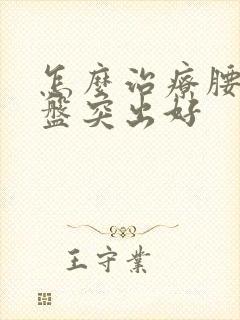 怎麼治療腰
盤突出好
王守業